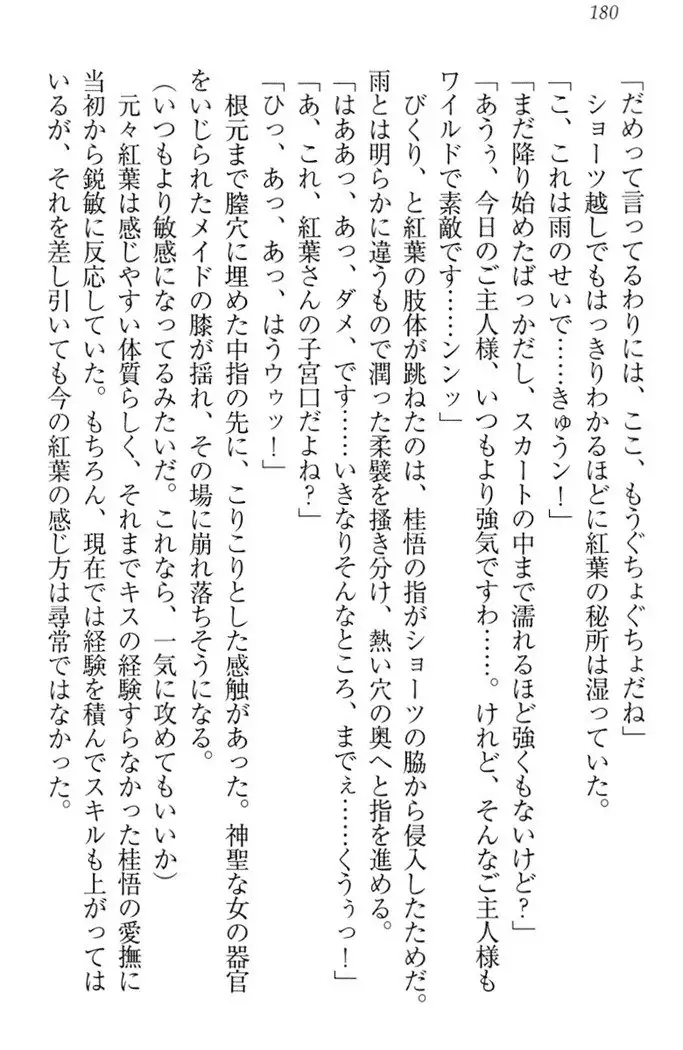 180
「だめって言ってるわりには、ここ、もうぐちょぐちょだね」
ショーツ越しでもはっきりわかるほどに紅葉の秘所は湿っていた。
「こ、これは雨のせいで……きゅうン！」
「まだ降り始めたばっかだし、スカートの中まで濡れるほど強くもないけど？」
「あうぅ、今日のご主人様、いつもより強気ですわ……。けれど、そんなご主人様も
ワイルドで素敵です……シンンッ」
びくり、と紅葉の肢体が跳ねたのは、桂悟の指がショーツの脇から侵入したためだ。
雨とは明らかに違うもので潤った柔襞を掻き分け、熱い穴の奥へと指を進める。
「はああっ、あっ、ダメ、です……いきなりそんなところ、までぇ……くうぅっ！」
「あ、これ、紅葉さんの子宮口だよね？」
「ひっ、あっ、あっ、はうウゥッ！」
根元まで膣穴に埋めた中指の先に、こりこりとした感触があった。神聖な女の器官
をいじられたメイドの膝が揺れ、その場に崩れ落ちそうになる。
（いつもより敏感になってるみたいだ。これなら、一気に攻めてもいいか）
元々紅葉は感じやすい体質らしく、それまでキスの経験すらなかった桂悟の愛撫に
当初から鋭敏に反応していた。もちろん、現在では経験を積んでスキルも上がっては
いるが、それを差し引いても今の紅葉の感じ方は尋常ではなかった。